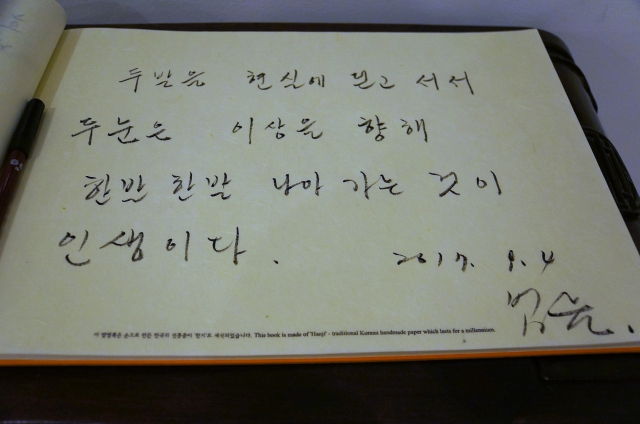 두 발은 현실에 딛고 서서
두 눈은 이상을 향해
한발 한발 나아 가는 것이
인생이다.
2017. 9. 4
법륜.
이 방명록은 손으로 만든 한국의 전통종이 '한지'로 제작되었습니다. This book is made of 'Hanji' - traditional Korean handmade paper which lasts for a millennium.